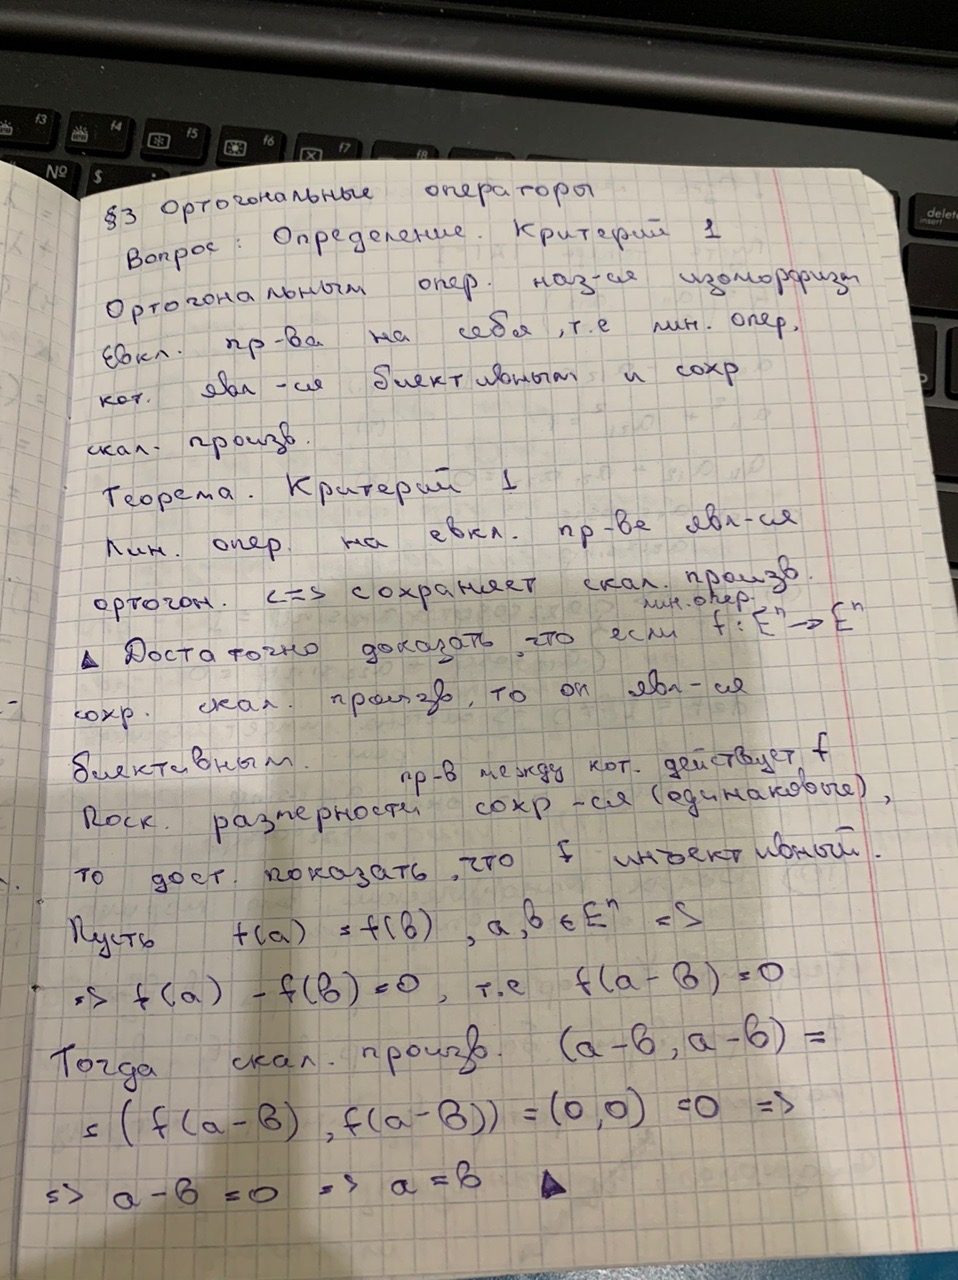 f3 f4 f5 f6 f7 f8
№ $ delete
insert
§3 Ортогональные операторы
Вопрос: Определение. Критерий 1
Ортогональным опер. наз-ся изоморфизм
Евкл. пр-ва на себя, т.е лин. опер.
кот. явл-ся биективным и сохр
скал. произв.
Теорема. Критерий 1
Лин. опер. на евкл. пр-ве явл-ся
ортогон. <=> сохраняет скал. произв.
лин. опер.
▲ Достаточно доказать, что если f: Eⁿ → Eⁿ
сохр. скал. произв, то он явл-ся
биективным.
пр-в между кот. действует f
Поск. размерности сохр-ся (одинаковые),
то дост. показать, что f инъективный.
Пусть f(a) = f(b), a, b ∈ Eⁿ =>
=> f(a) - f(b) = 0, т.е f(a-b) = 0
Тогда скал. произв. (a-b, a-b) =
= (f(a-b), f(a-b)) = (0,0) = 0 =>
=> a-b = 0 => a = b ▲